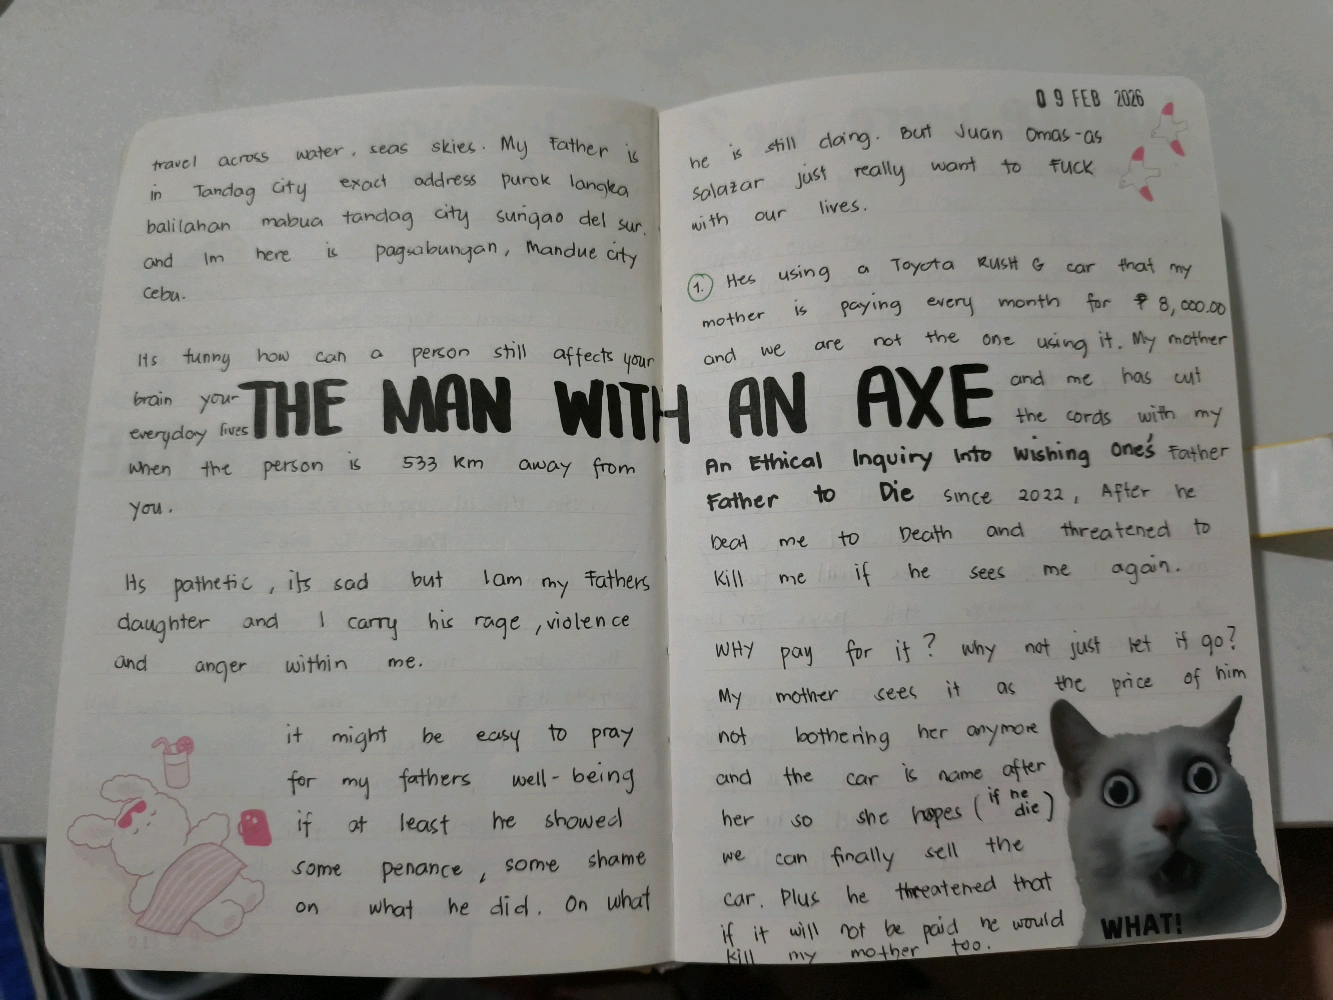 travel across water, seas skies. My Father is
in Tandag City exact address purok langka
balilahan mabua tandag city surigao del sur.
and Im here is pagsabungan, Mandue city
Cebu.
Its funny how can a person still affects your
brain your
everyday lives
when the person is 533 km away from
you.
Its pathetic, its sad but I am my Fathers
daughter and I carry his rage, violence
and anger within me.
it might be easy to pray
for my fathers well-being
if at least he showed
some penance, some shame
on what he did. On what
THE MAN WITH AN AXE
09 FEB 2026
he is still doing. But Juan Omas-as
Salazar just really want to FUCK
with our lives.
1. Hes using a Toyota RUSH G car that my
mother is paying every month for ₱ 8,000.00
and we are not the one using it. My mother
and me has cut
the cords with my
An Ethical Inquiry Into Wishing One's Father
Father to Die since 2022, After he
beat me to Death and threatened to
kill me if he sees me again.
WHY pay for it? why not just let it go?
My mother sees it as the price of him
not bothering her anymore
and the car is name after
her so she hopes (if he die)
we can finally sell the
car. Plus he threatened that
if it will not be paid he would
kill my mother too.
WHAT!